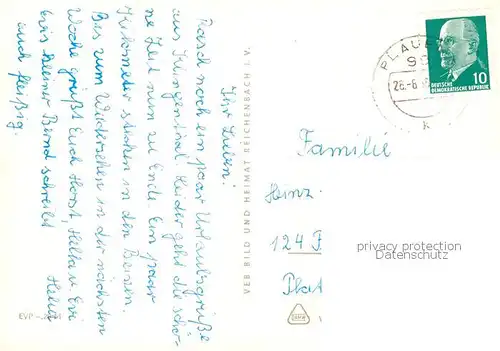 Ihr Lieben!
Rasch noch ein paar Urlaubsgrüße
aus Klingenthal. Leider geht die schö-
ne Zeit nun zu Ende. Ein paar
Kilometer stecken in den Beinen.
Bis zum Wiedersehen in der nächsten
Woche grüßt Euch Horst, Hella u. Evi
Evis kleiner Bernd schreibt
auch fleißig.
EVP
VEB BILD UND HEIMAT REICHENBACH I. V.
PLAUE
DEUTSCHE
DEMOKRATISCHE REPUBLIK
10
Familie
Heinz
124 F
Plat
privacy protection
Datenschutz